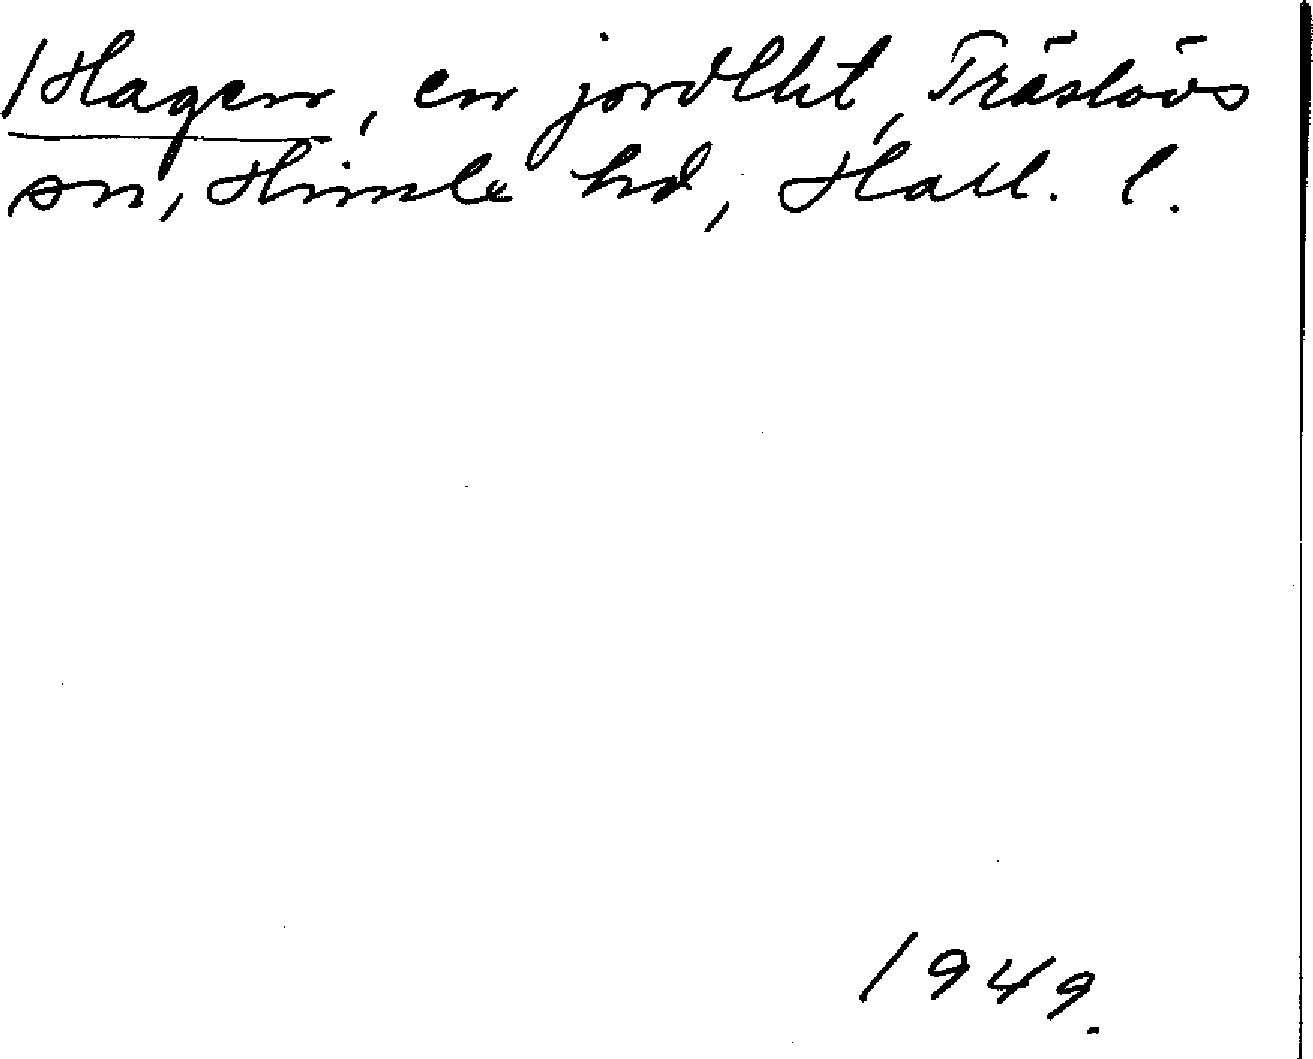 /Hagen, en jordlht, Träslövs
sn, Himle hd, Hall. l.
1949.